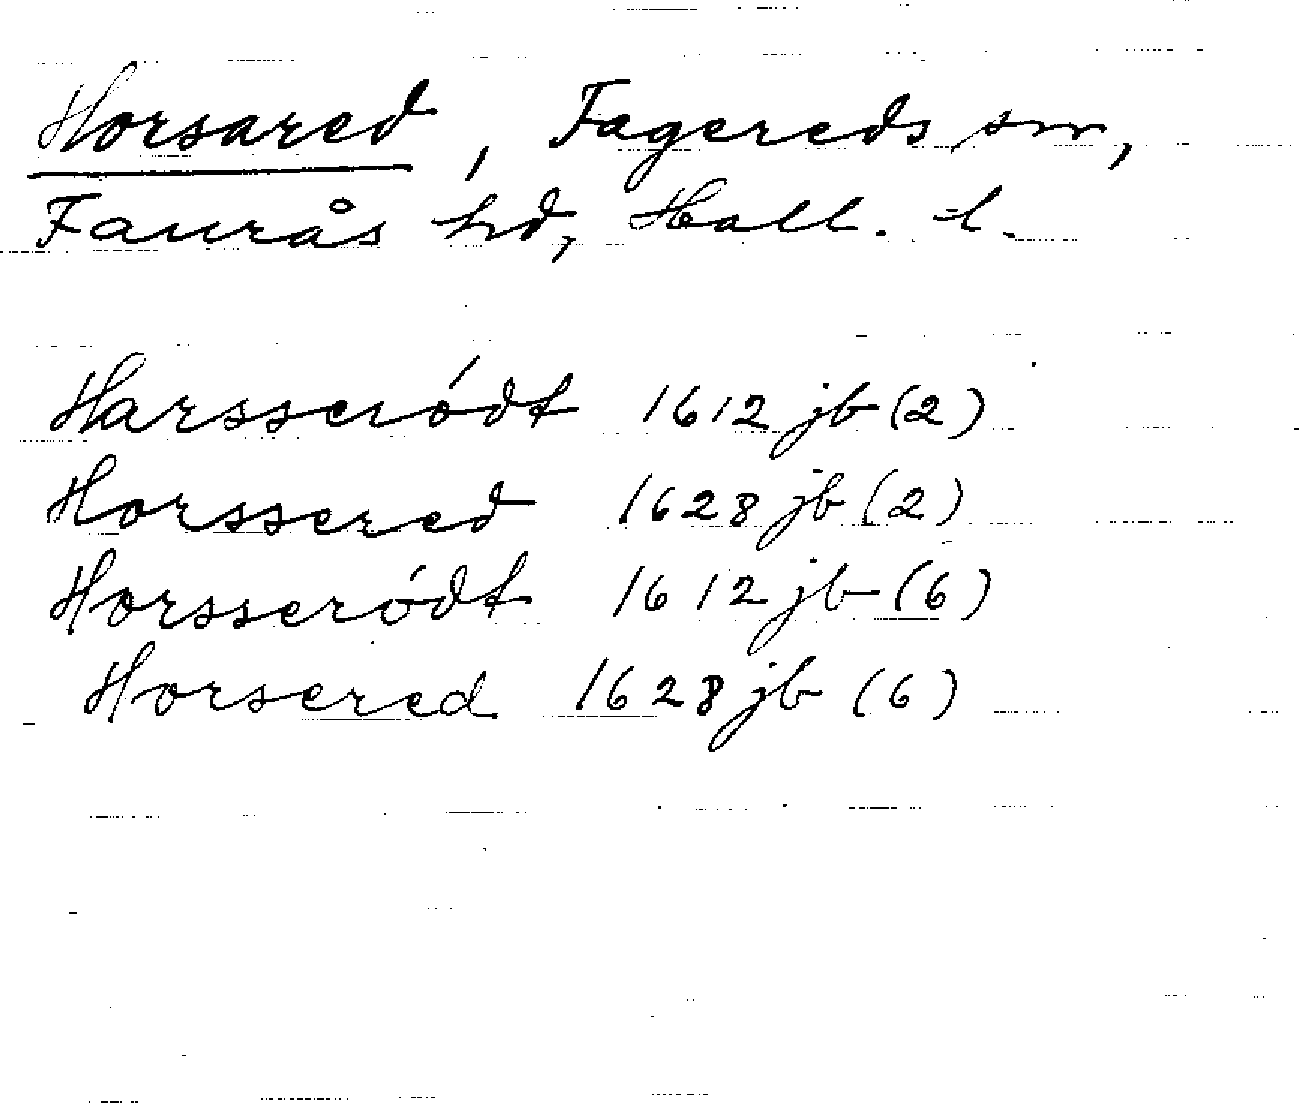 Horsared, Fagereds sn,
Faurås hd, Hall. l.
Harsseródt 1612 jb (2)
Horssered 1628 jb (2)
Horsseródt 1612 jb (6)
Horsered 1628 jb (6)